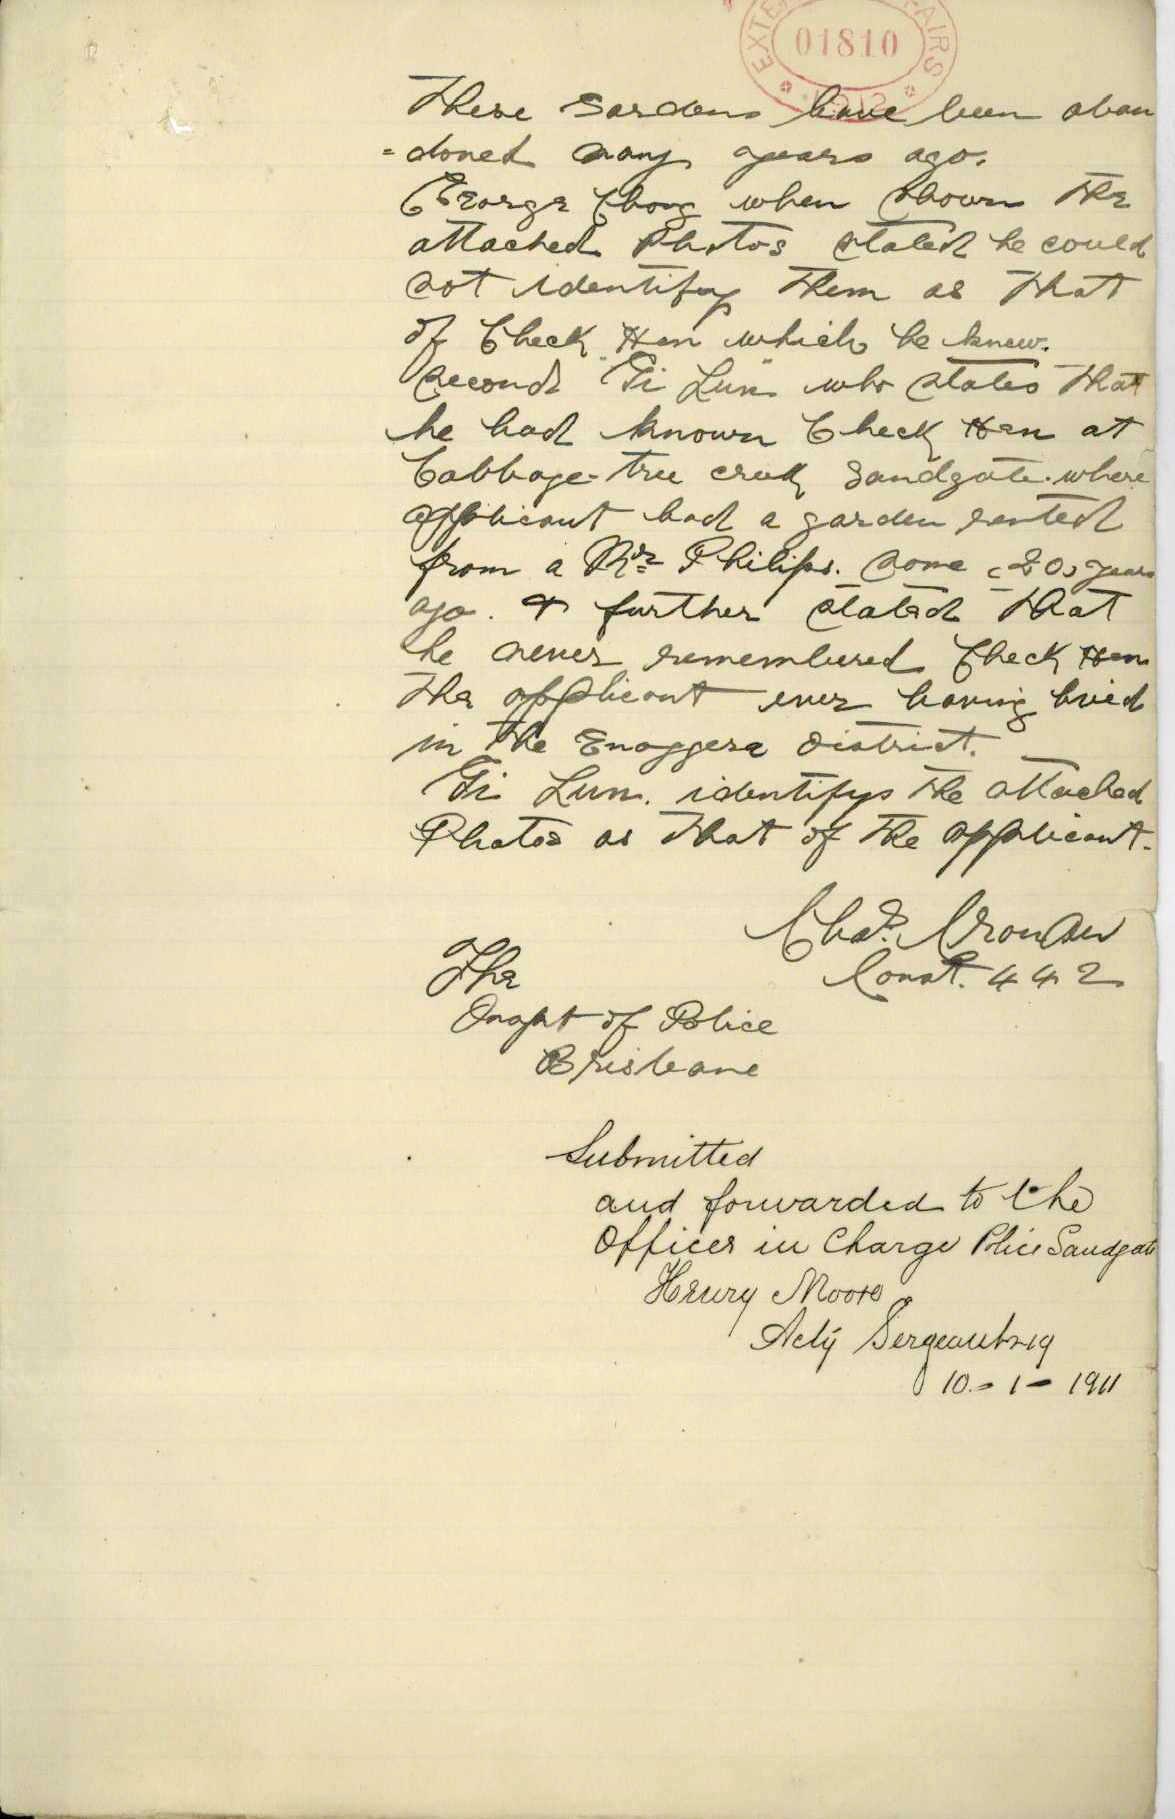 EXTERNAL AFFAIRS
01810
1912
These Gardens have been aban
=doned many years ago.
George Chong when shown the
attached Photos stated he could
not identify them as that
of Check Hen which he knew.
Second "Gi Lun" who states that
he had known Check Hen at
Cabbage-tree creek Sandgate. where
applicant had a garden rented
from a Mr Philips. some (20) years
ago. & further stated that
he never remembered Check Hen
the applicant ever having lived
in the Enoggera District.
Gi Lun. identifys the attached
Photos as that of the applicant.
Chas. 
Const. 442
The
Inspt of Police
Brisbane
Submitted
and forwarded to the
Officer in Charge Police Sandgate
Henry Moore
Actg Sergeant
10-1-1911